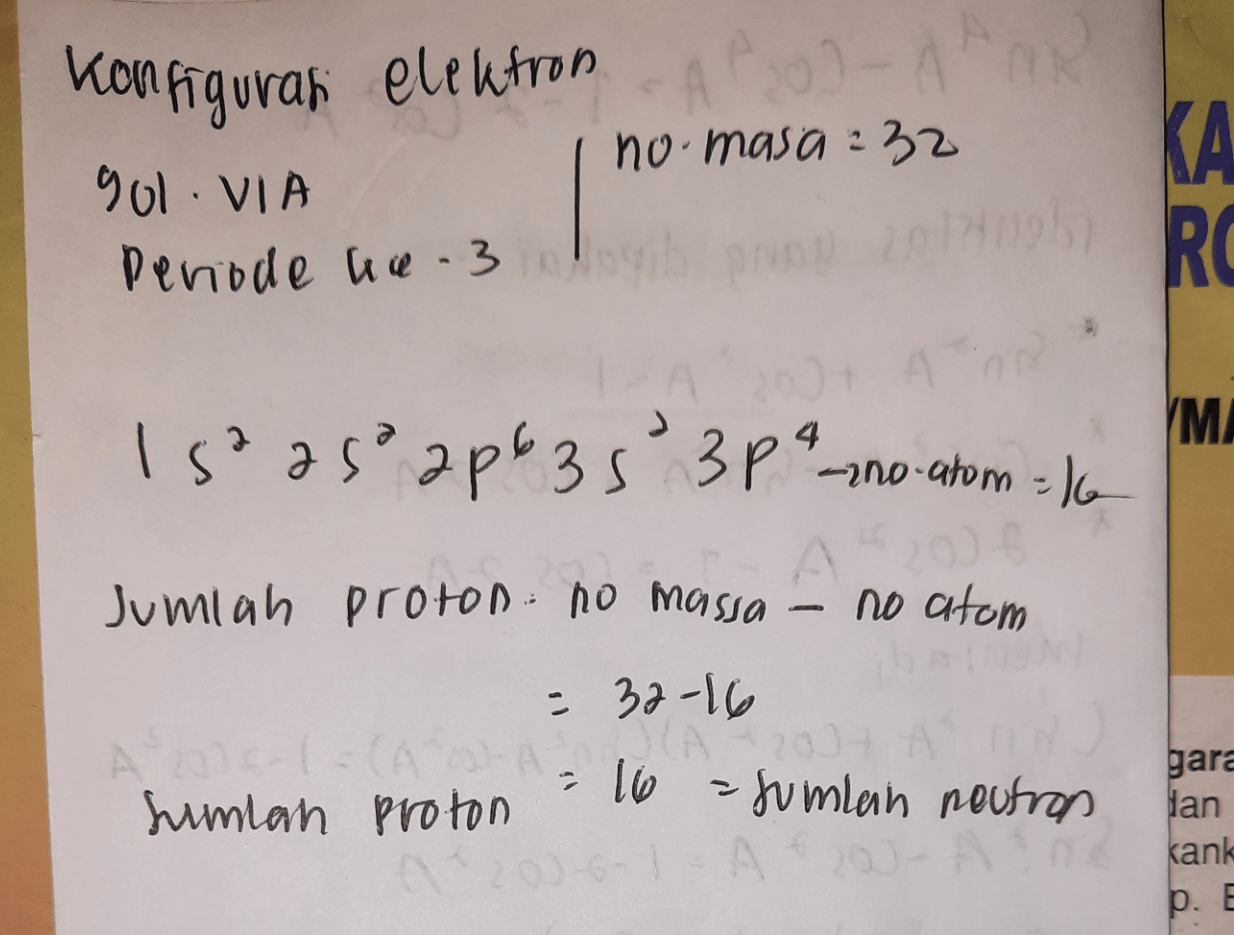 Konfigurasi elektron
gol. VIA
Periode ke-3
no. masa = 32
1s² 2s² 2p⁶ 3s² 3p⁴ → no. atom = 16
Jumlah proton = no massa – no atom
= 32 - 16
Jumlah proton = 16 = Jumlah neutron
KA
RO
/MA
gara
dan
kank
p. E